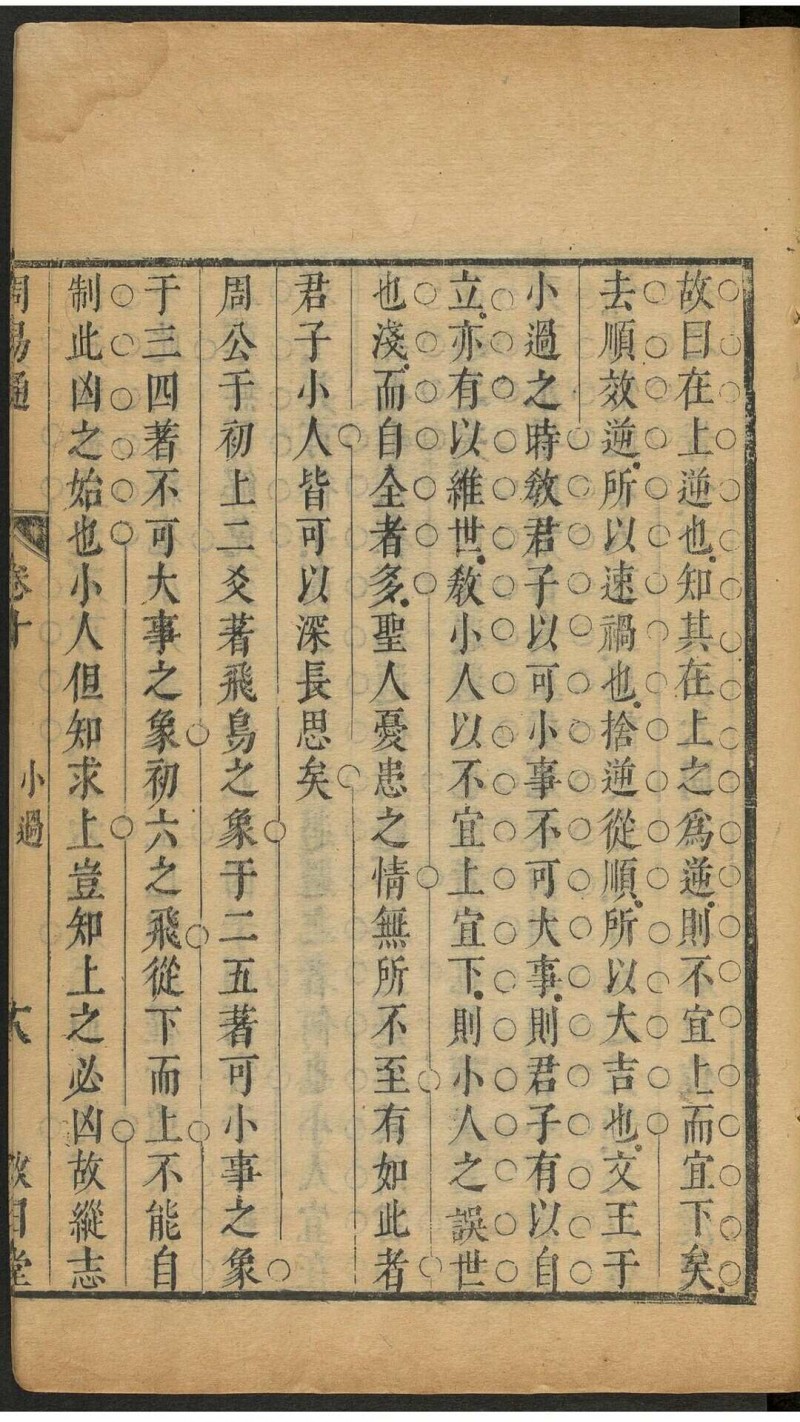 故曰在上逆也知其在上之爲逆則不宜上而宜下矣
去順效逆所以速禍也捨逆從順所以大吉也文王于
小過之時敎君子以可小事不可大事則君子有以自
立亦有以維世敎小人以不宜上宜下則小人之誤世
也淺而自全者多聖人憂患之情無所不至有如此者
君子小人皆可以深長思矣
周公于初上二爻著飛鳥之象于二五著可小事之象
于三四著不可大事之象初六之飛從下而上不能自
制此凶之始也小人但知求上豈知上之必凶故縱志
周易通 卷十 小過